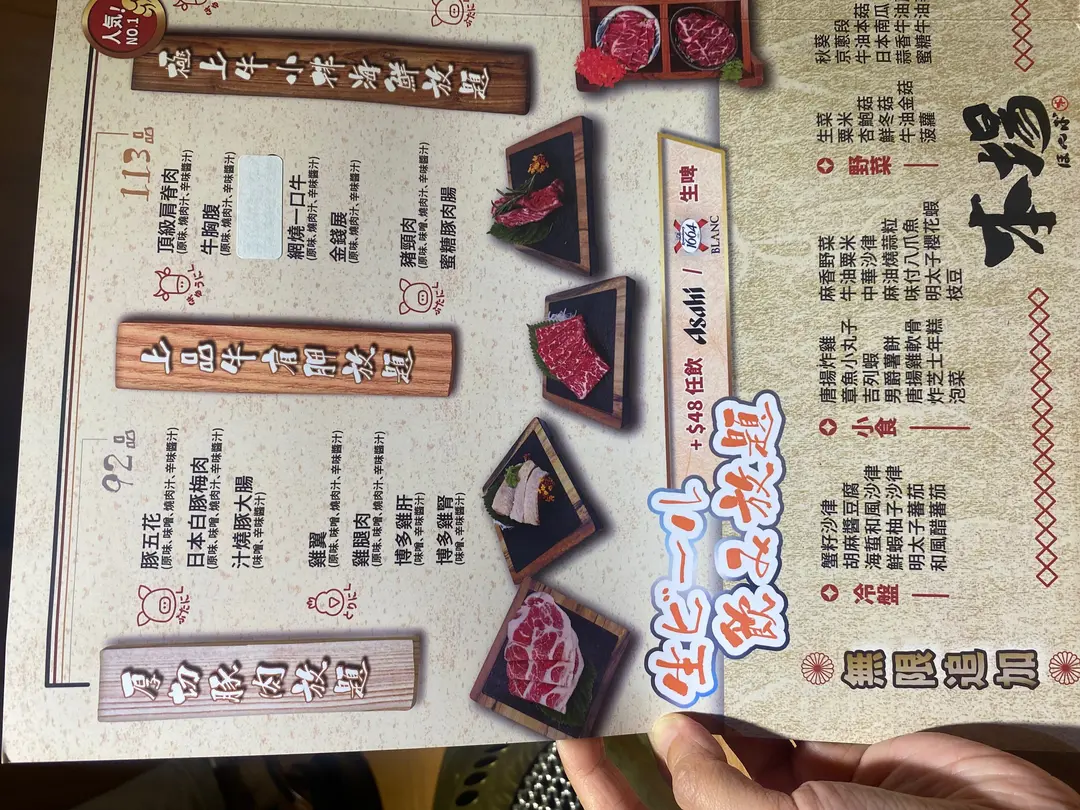 厚切豚肉放題
92品
ぶたにし
豚五花
(原味、味噌、燒肉汁、辛味醬汁)
日本白豚梅肉
(原味、味噌、燒肉汁、辛味醬汁)
汁燒豚大腸
(味噌、辛味醬汁)
とりにし
雞翼
(原味、味噌、燒肉汁、辛味醬汁)
雞腿肉
(原味、味噌、燒肉汁、辛味醬汁)
博多雞肝
(味噌、辛味醬汁)
博多雞腎
(味噌、辛味醬汁)
上品牛肩胛放題
113品
ぎゅうにし
頂級肩脊肉
(原味、燒肉汁、辛味醬汁)
牛胸腹
(原味、燒肉汁、辛味醬汁)
網燒一口牛
(原味、燒肉汁、辛味醬汁)
金錢展
(原味、燒肉汁、辛味醬汁)
ぶたにし
豬頸肉
(原味、味噌、燒肉汁、辛味醬汁)
蜜糖豚肉腸
人気!
NO.1
極上牛小排海鮮放題
生ビール
飲み放題
+$48任飲 Asahi / 1664 BLANC 生啤
無限追加
冷盤
蟹籽沙律
胡麻醬豆腐
海蜇和風沙律
鮮蝦柚子沙律
明太子蕃茄
和風醋蕃茄
小食
唐揚炸雞
章魚小丸子
吉列蝦
男爵薯餅
唐揚雞軟骨
炸芝士年糕
泡菜
麻香野菜
牛油粟米
中華沙律
麻油燒蒜粒
味付八爪魚
明太子櫻花蝦
枝豆
野菜
生菜
粟米
杏鮑菇
鮮冬菇
牛油金菇
菠蘿
秋葵
京葱段
牛油本菇
日本南瓜
蒜香牛油
蜜糖牛油
本場
ほんば